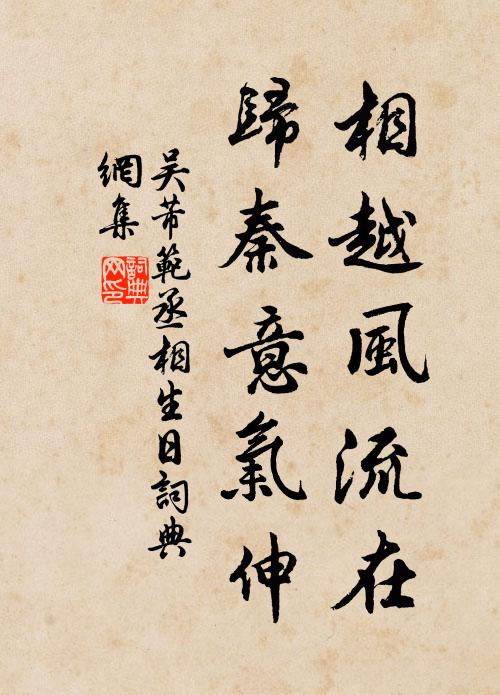 相越風流在
歸秦意氣伸
吴芾範丞相生日詞典
網集
詞典
网印